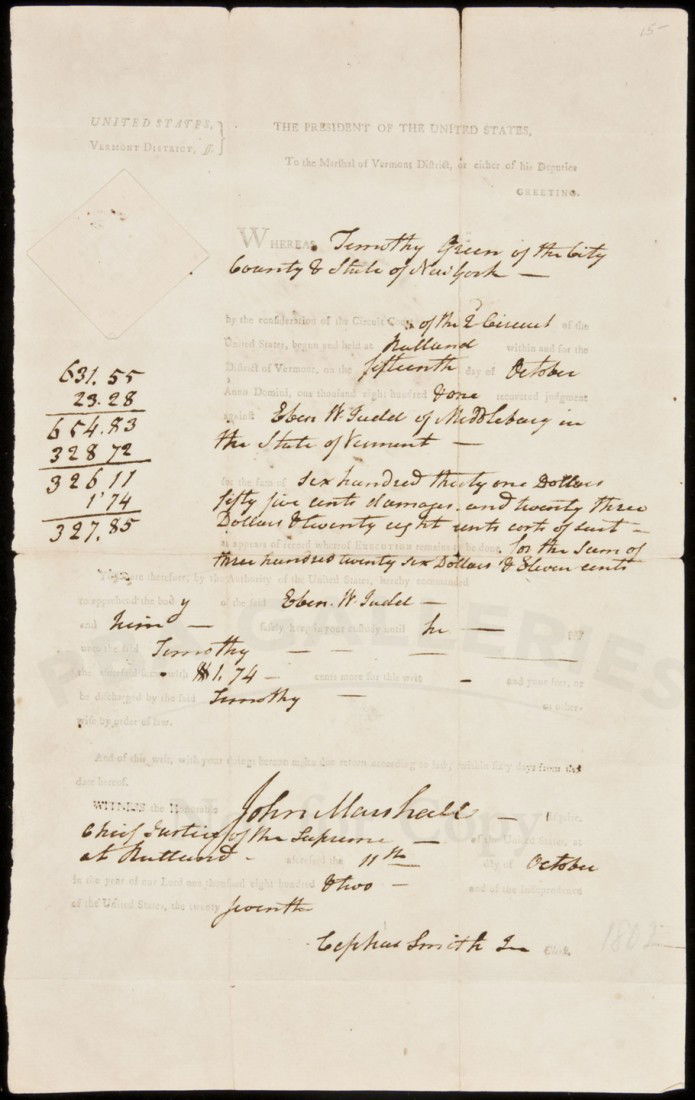 15-
UNITED STATES,
VERMONT DISTRICT, ss.
THE PRESIDENT OF THE UNITED STATES,
To the Marshal of Vermont District, or either of his Deputies
GREETING.
WHEREAS Timothy Green of the City
County & State of New York —
by the consideration of the Circuit Court of the 2d Circuit of the
United States, begun and held at Rutland within and for the
District of Vermont, on the fifteenth day of October
Anno Domini, one thousand eight hundred & one recovered judgment
against Eben W Judd of Middlebury in
the State of Vermont —
for the sum of six hundred thirty one Dollars
fifty five cents damages, and twenty three
Dollars & twenty eight cents costs of suit —
as appears of record whereof EXECUTION remains to be done, for the sum of
three hundred twenty six Dollars & Eleven cents
631.55
23.28
654.83
328 72
326 11
1'74
327.85
therefore, by the Authority of the United States, hereby commanded
to apprehend the body of the said Eben. W. Judd —
and him — safely keep in your custody until he — pay
unto the said Timothy — — —
the aforesaid sums with $1.74 — cents more for this writ - and your fees, or
be discharged by the said Timothy — or other-
wise by order of law.
And of this writ, with your doings hereon make due return according to law, within sixty days from the
date hereof.
WITNESS the Honorable John Marshall — Esquire,
Chief Justice of the Supreme — of the United States, at
at Rutland - aforesaid the 11th day of October
in the year of our Lord one thousand eight hundred & two — and of the Independence
of the United States, the twenty seventh
Cephas Smith Jr Clerk.
1802
PBA GALLERIES
Not for Copy